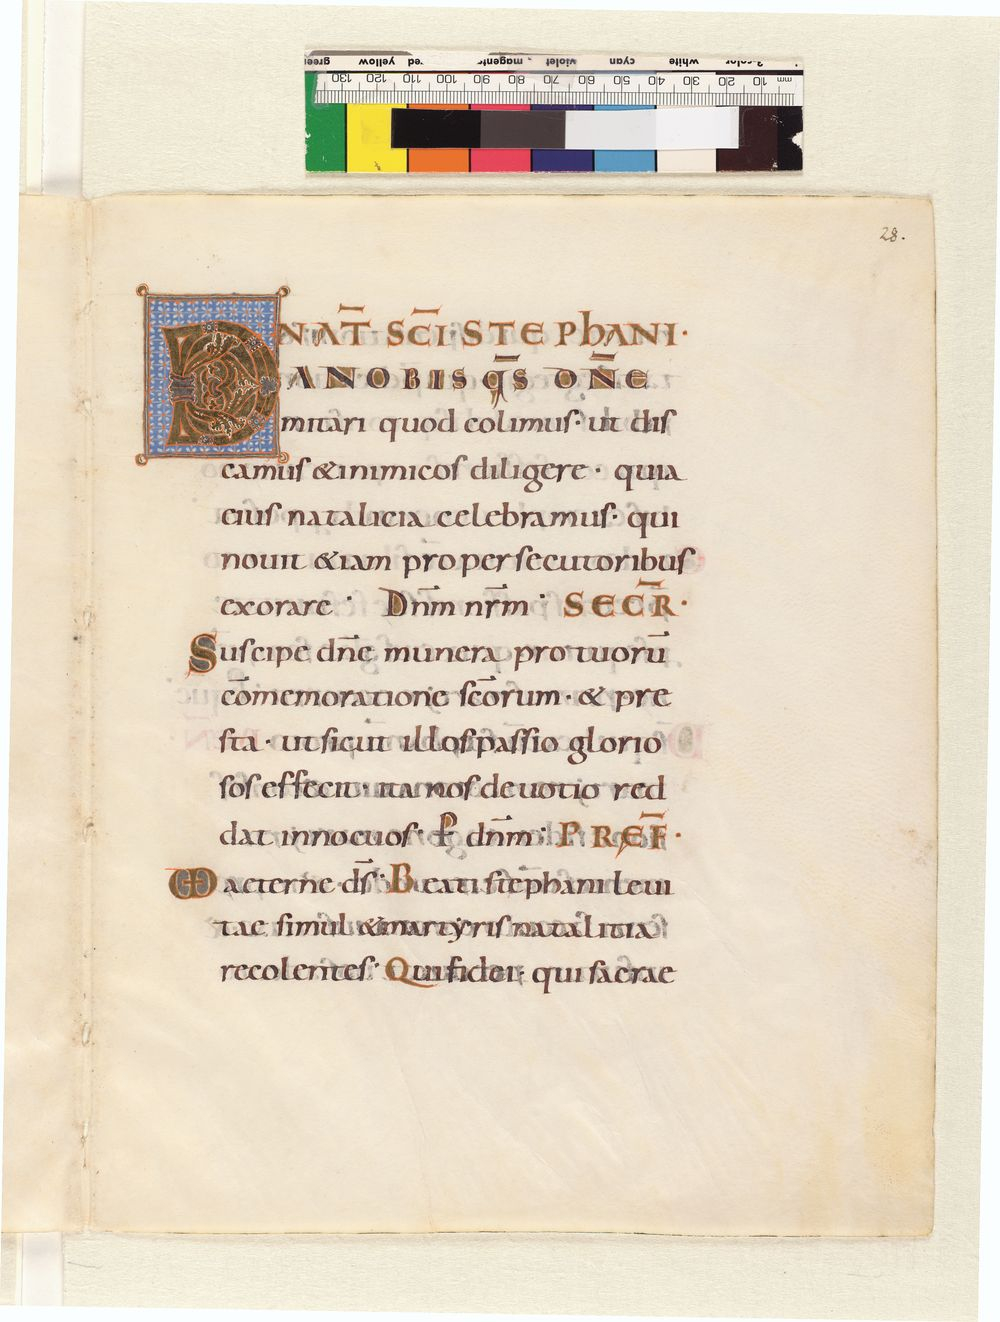 28.
IN NAT̄ SC̄I STEPHANI·
DANOBIS q̄s DN̄E
imitari quod colimus· ut dis
camus & inimicos diligere· quia
eius natalicia celebramus· qui
nouit &iam pro persecutoribus
exorare· Dn̄m nr̄m· SECR̄·
Suscipe dn̄e munera pro tuorū
cōmemoratione sc̄orum· & pre
sta· ut sicut illos passio glorio
sos effecit· ita nos deuotio red
dat innocuos· P dn̄m· PREF̄·
aeterne d̄s· Beati stephani leui
tae simul & martyris natalitia
recolentes· Qui fidei· qui sacrae